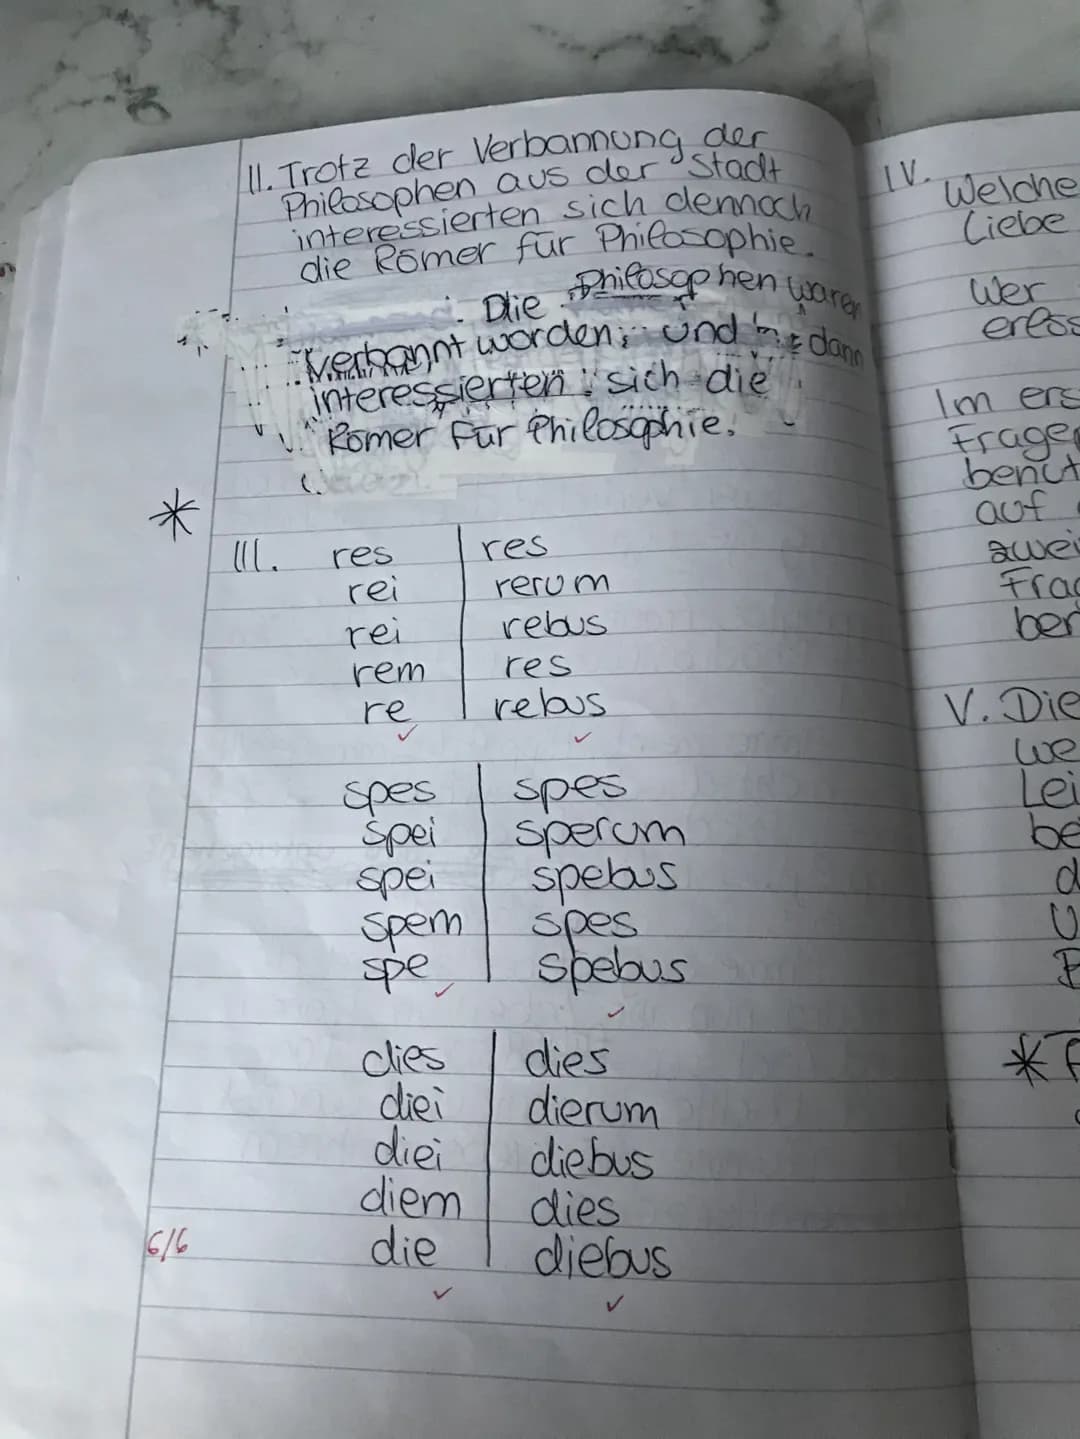 II. Trotz der Verbannung der
Philosophen aus der Stadt
interessierten sich dennoch
die Römer für Philosophie.
Die Philosophen waren
verbannt worden, und dann
interessierten sich die
Römer für Philosophie.
*
III. res | res
rei | rerum
rei | rebus
rem | res
re | rebus
spes | spes
spei | sperum
spei | spebus
spem | spes
spe | spebus
dies | dies
diei | dierum
diei | diebus
diem | dies
6/6 die | diebus
IV.
Welche
Liebe
Wer
Im ers
Frage
benut
auf
zwei
Frag
ber
V. Die
we
Lei
be
d
U
*